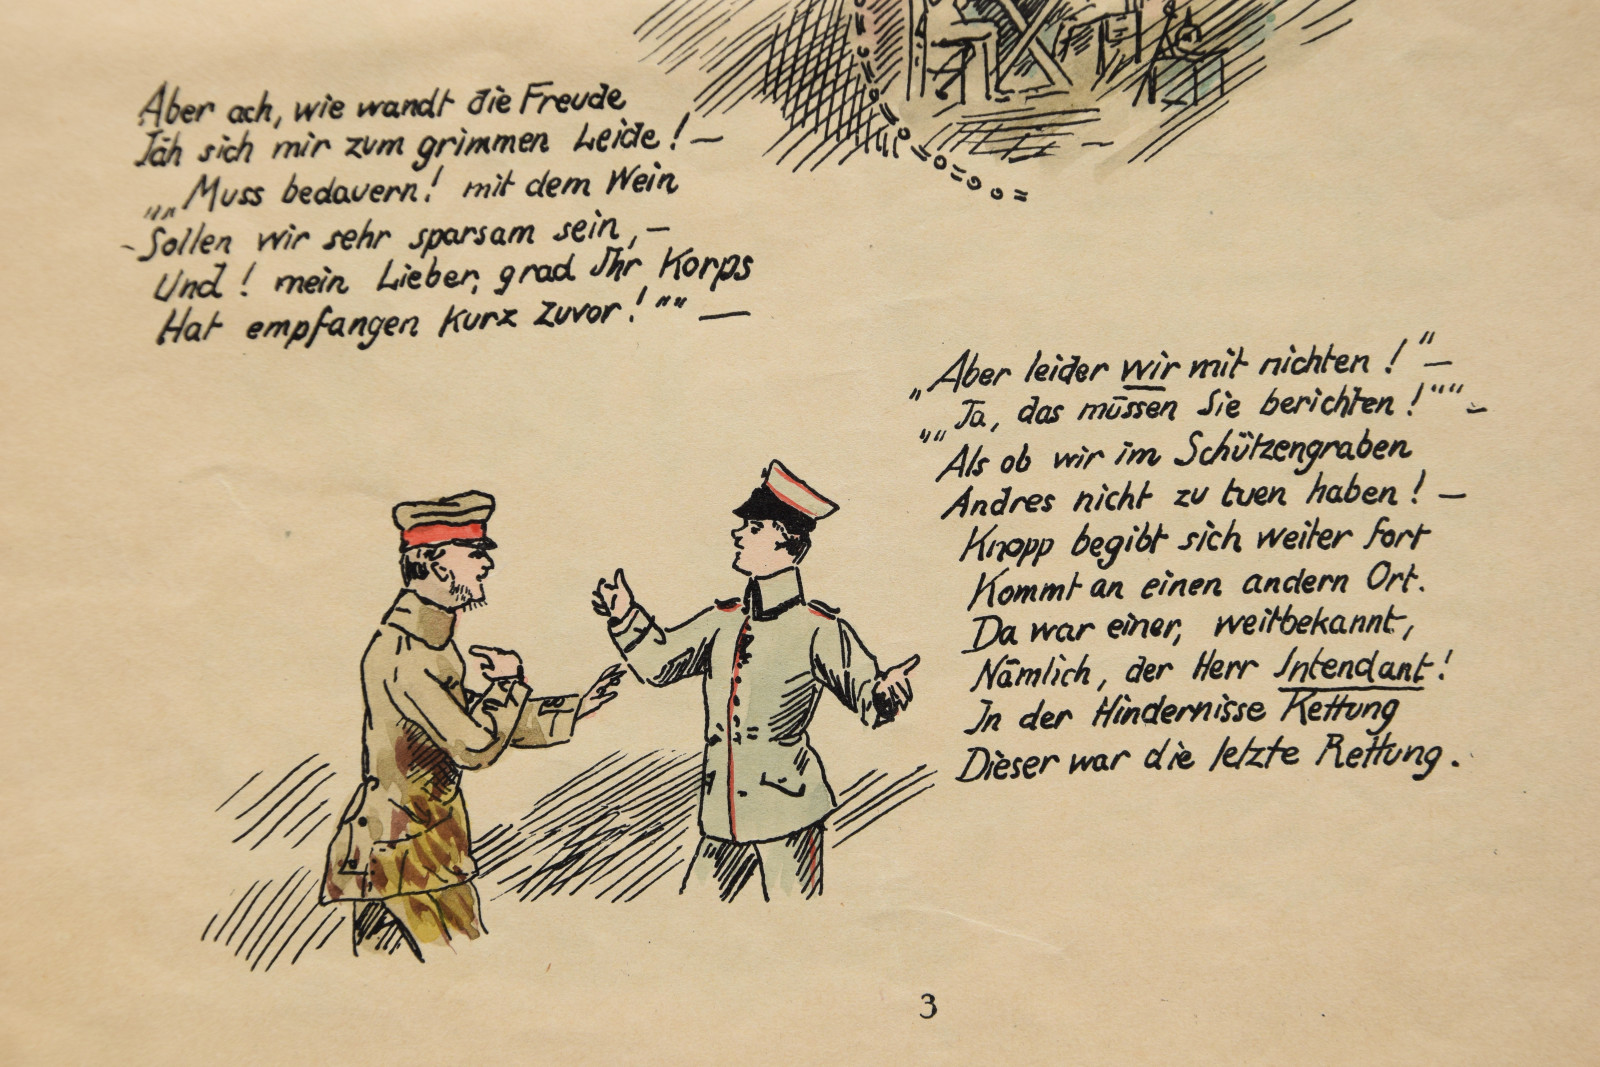 Aber ach, wie wandt die Freude
Jäh sich mir zum grimmen Leide! —
„„Muss bedauern! mit dem Wein
- Sollen wir sehr sparsam sein, —
Und! mein Lieber, grad Ihr Korps
Hat empfangen kurz zuvor!"" —
„Aber leider wir mit nichten!" —
„„Ja, das müssen Sie berichten!"" —
Als ob wir im Schützengraben
Andres nicht zu tuen haben! —
Knopp begibt sich weiter fort
Kommt an einen andern Ort.
Da war einer, weitbekannt,
Nämlich, der Herr Intendant!
In der Hindernisse Kettung
Dieser war die letzte Rettung.
3